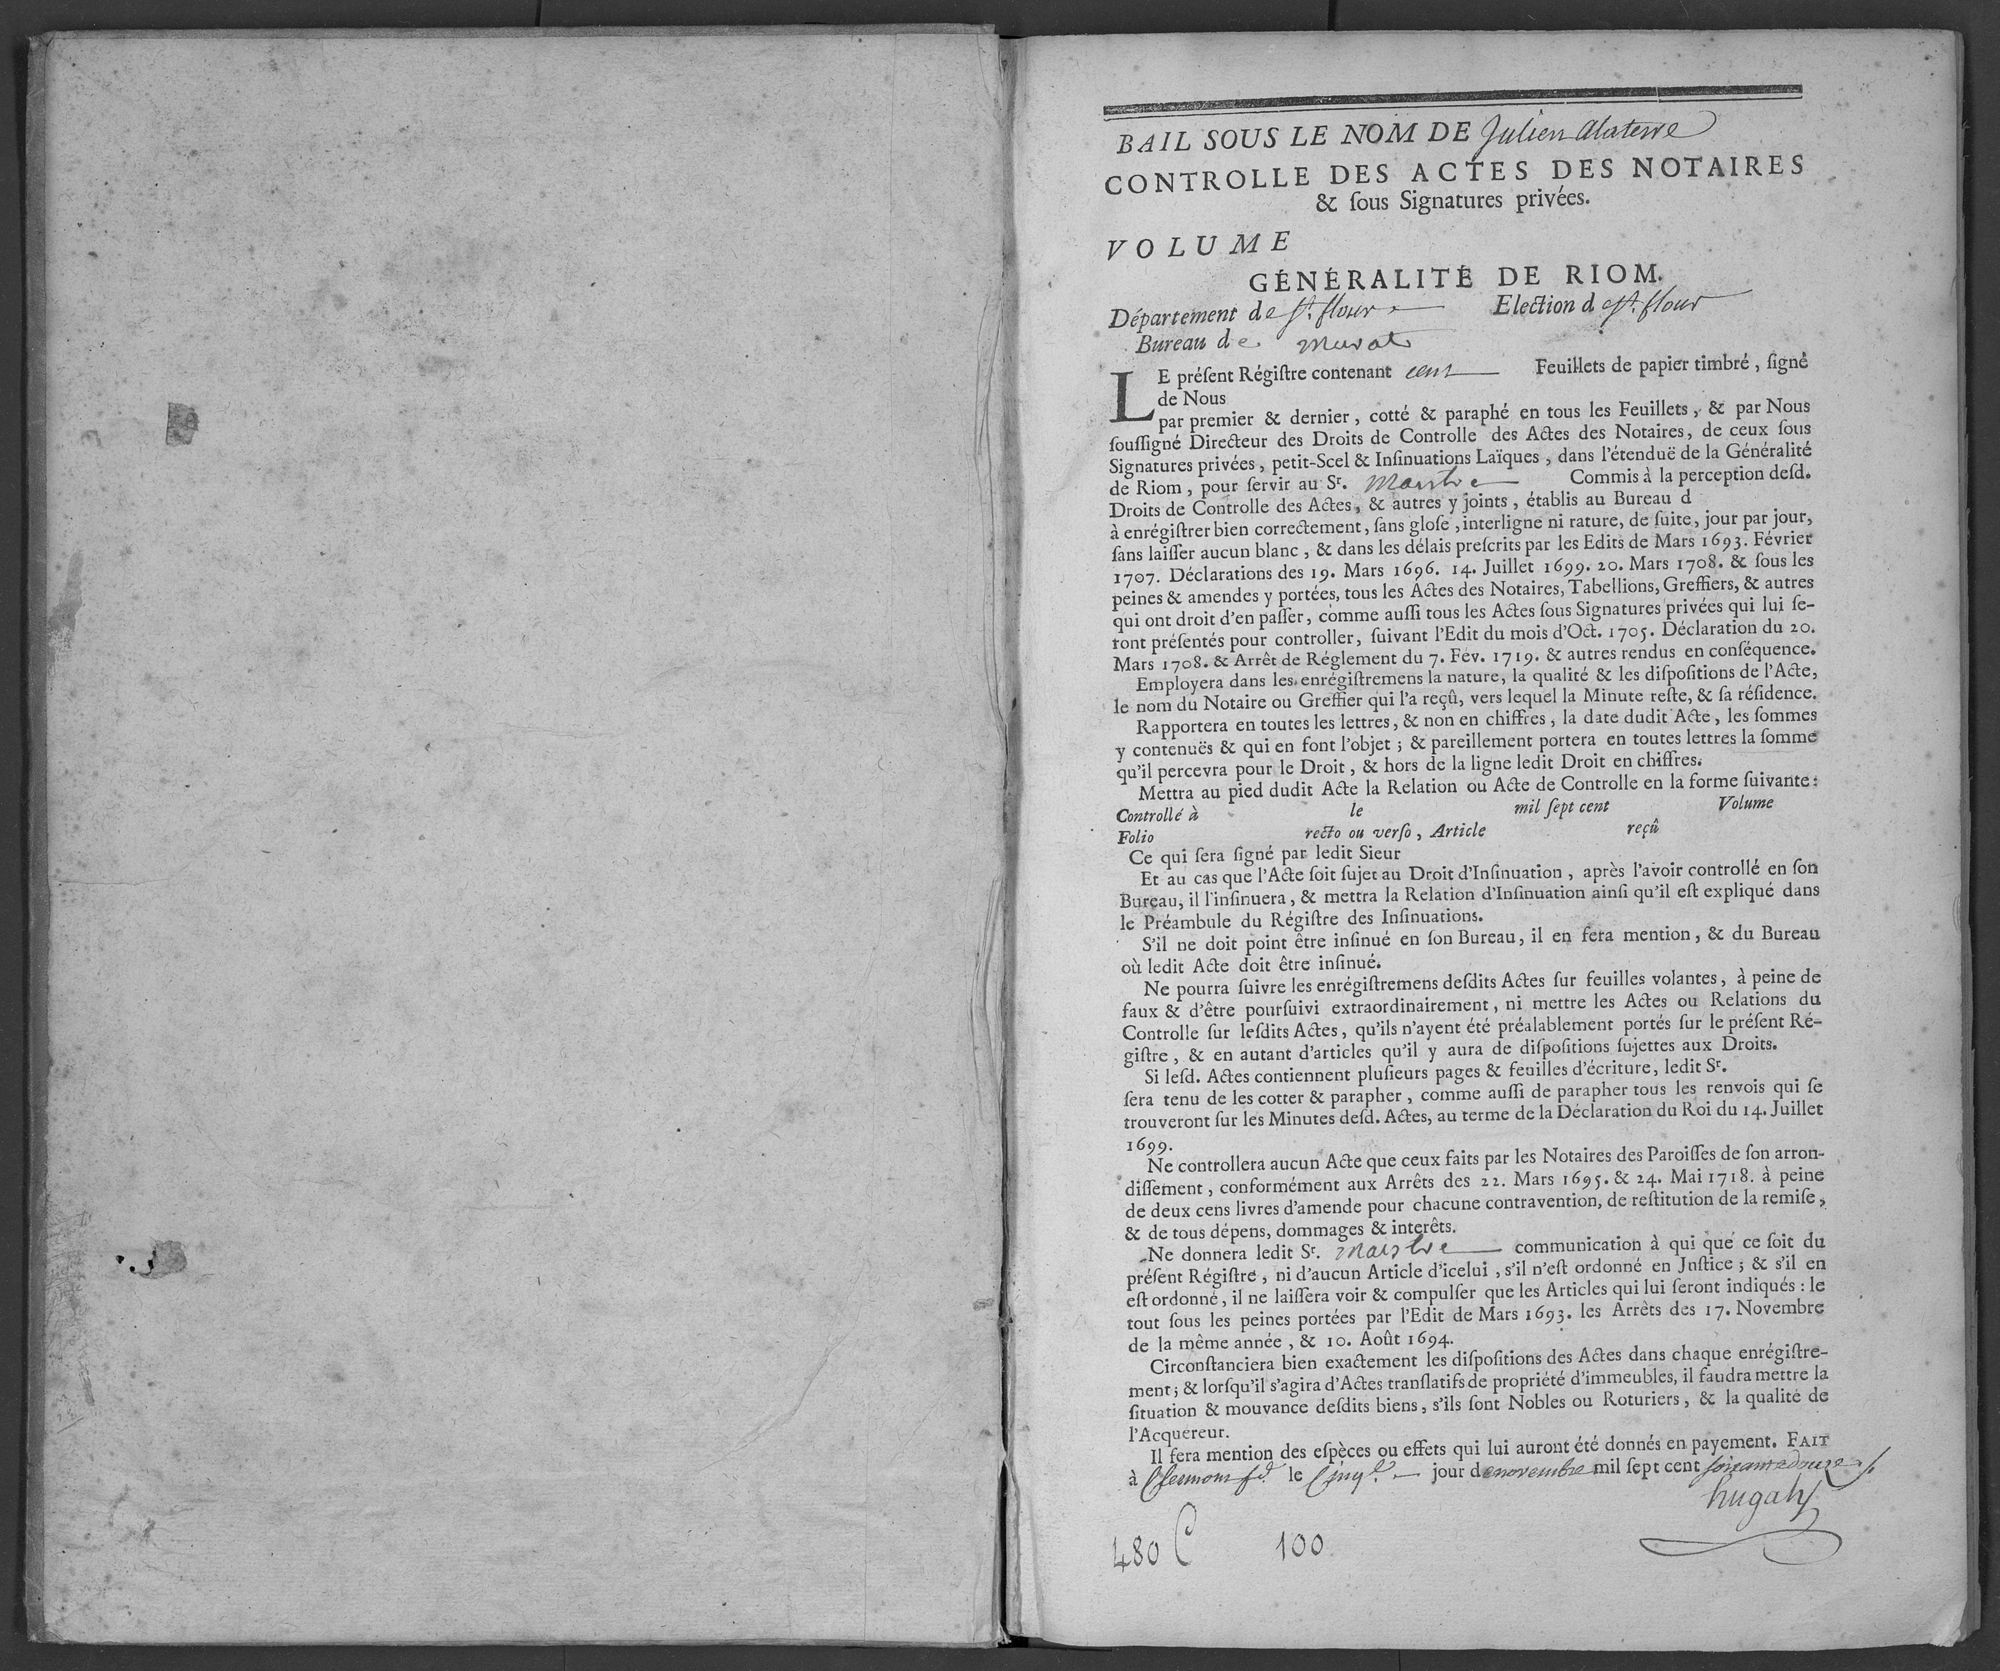 BAIL SOUS LE NOM DE Julien Alaterre
CONTROLLE DES ACTES DES NOTAIRES
& ſous Signatures privées.
VOLUME
GÉNÉRALITÉ DE RIOM.
Département de St. flour Election de St. flour
Bureau de Murat
LE préſent Régiſtre contenant cent Feuillets de papier timbré, ſigné
de Nous
par premier & dernier, cotté & paraphé en tous les Feuillets, & par Nous
ſouſſigné Directeur des Droits de Controlle des Actes des Notaires, de ceux ſous
Signatures privées, petit-Scel & Inſinuations Laïques, dans l'étenduë de la Généralité
de Riom, pour ſervir au Sr. Maistre Commis à la perception deſd.
Droits de Controlle des Actes, & autres y joints, établis au Bureau d
à enrégiſtrer bien correctement, ſans gloſe, interligne ni rature, de ſuite, jour par jour,
ſans laiſſer aucun blanc, & dans les délais preſcrits par les Edits de Mars 1693. Février
1707. Déclarations des 19. Mars 1696. 14. Juillet 1699. 20. Mars 1708. & ſous les
peines & amendes y portées, tous les Actes des Notaires, Tabellions, Greffiers, & autres
qui ont droit d'en paſſer, comme auſſi tous les Actes ſous Signatures privées qui lui ſe-
ront préſentés pour controller, ſuivant l'Edit du mois d'Oct. 1705. Déclaration du 20.
Mars 1708. & Arrêt de Réglement du 7. Fév. 1719. & autres rendus en conſéquence.
Employera dans les enrégiſtremens la nature, la qualité & les diſpoſitions de l'Acte,
le nom du Notaire ou Greffier qui l'a reçû, vers lequel la Minute reſte, & ſa réſidence.
Rapportera en toutes les lettres, & non en chiffres, la date dudit Acte, les ſommes
y contenuës & qui en font l'objet; & pareillement portera en toutes lettres la ſomme
qu'il percevra pour le Droit, & hors de la ligne ledit Droit en chiffres.
Mettra au pied dudit Acte la Relation ou Acte de Controlle en la forme ſuivante:
Controllé à le mil ſept cent Volume
Folio recto ou verſo, Article reçû
Ce qui ſera ſigné par ledit Sieur
Et au cas que l'Acte ſoit ſujet au Droit d'Inſinuation, après l'avoir controllé en ſon
Bureau, il l'inſinuera, & mettra la Relation d'Inſinuation ainſi qu'il eſt expliqué dans
le Préambule du Régiſtre des Inſinuations.
S'il ne doit point être inſinué en ſon Bureau, il en fera mention, & du Bureau
où ledit Acte doit être inſinué.
Ne pourra ſuivre les enrégiſtremens deſdits Actes ſur feuilles volantes, à peine de
faux & d'être pourſuivi extraordinairement, ni mettre les Actes ou Relations du
Controlle ſur leſdits Actes, qu'ils n'ayent été préalablement portés ſur le préſent Ré-
giſtre, & en autant d'articles qu'il y aura de diſpoſitions ſujettes aux Droits.
Si leſd. Actes contiennent pluſieurs pages & feuilles d'écriture, ledit Sr.
ſera tenu de les cotter & parapher, comme auſſi de parapher tous les renvois qui ſe
trouveront ſur les Minutes deſd. Actes, au terme de la Déclaration du Roi du 14. Juillet
1699.
Ne controllera aucun Acte que ceux faits par les Notaires des Paroiſſes de ſon arron-
diſſement, conformément aux Arrêts des 22. Mars 1695. & 24. Mai 1718. à peine
de deux cens livres d'amende pour chacune contravention, de reſtitution de la remiſe,
& de tous dépens, dommages & interêts.
Ne donnera ledit Sr. Maistre communication à qui que ce ſoit du
préſent Régiſtre, ni d'aucun Article d'icelui, s'il n'eſt ordonné en Juſtice; & s'il en
eſt ordonné, il ne laiſſera voir & compulſer que les Articles qui lui ſeront indiqués: le
tout ſous les peines portées par l'Edit de Mars 1693. les Arrêts des 17. Novembre
de la même année, & 10. Août 1694.
Circonſtanciera bien exactement les diſpoſitions des Actes dans chaque enrégiſtre-
ment; & lorſqu'il s'agira d'Actes tranſlatifs de propriété d'immeubles, il faudra mettre la
ſituation & mouvance deſdits biens, s'ils ſont Nobles ou Roturiers, & la qualité de
l'Acquéreur.
Il fera mention des eſpèces ou effets qui lui auront été donnés en payement. FAIT
à Clermont fd. le Cinq jour de novembre mil ſept cent soixante douze
hugah
480 C 100